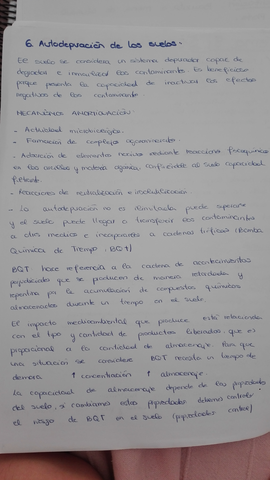 6. Autodepuración de los suelos.-
EE suelo se considera un sistema depurador capaz de
degradar e inmovilizar los contaminantes. Es beneficioso
porque presenta la capacidad de inactivar los efectos
negativos de los contaminantes
MECANISMOS AMORTIGUACIÓN
- Actividad microbiológica.
- Formación de complejos organominerales
- Adsorción de elementos nocivos mediante reacciones fisicoquímicas
en las arcillas y materia orgánica, confiriéndole al suelo capacidad
filtrante.
- Reacciones de
- La autodepuración no es ilimitada, puede superarse
y el suelo puede llegar a transferir los contaminantes
a otros medios e incorporarse a cadenas tróficas (Bomba
Química de Tiempo: BQT)
BQT hace referencia a la cadena de acontecimientos
que se producen de manera retardada y
repentina por la acumulación de compuestos químicos
almacenados durante un tiempo en el suelo.
El impacto medioambiental que produce está relacionado
con el tipo y cantidad de productos liberados, que es
proporcional a la cantidad de almacenaje. Para que
una situación se considere BQT necesita un tiempo de
demora ↑ concentración ↑ almacenaje
La capacidad de almacenaje depende de las propiedades
del suelo, si cambiamos estas propiedades debemos controlar
el riesgo de BQT en el suelo (propiedades